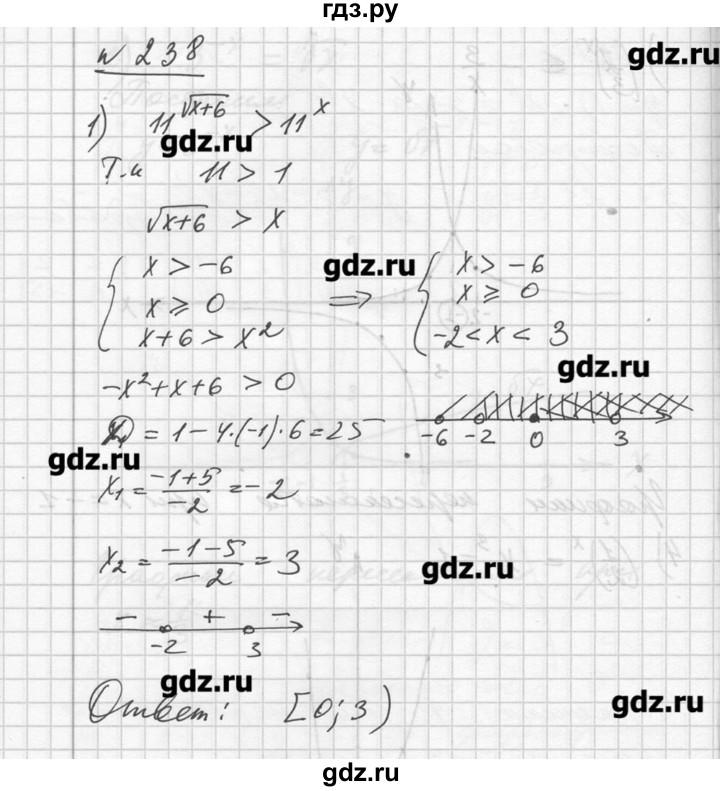 гдз.ру
N 238
gdz.ru
1) 11^√(x+6) > 11^x
gdz.ru
Т.к 11 > 1
√(x+6) > x
{ x > -6
x ⩾ 0
x+6 > x²
gdz.ru
=> { x > -6
x ⩾ 0
-2 < x < 3
gdz.ru
-x²+x+6 > 0
D = 1-4·(-1)·6=25
-6 -2 0 3
gdz.ru
x₁ = (-1+5)/(-2) = -2
x₂ = (-1-5)/(-2) = 3
gdz.ru
- + -
-2 3
gdz.ru
Ответ: [0; 3)
gdz.ru
gdz.ru